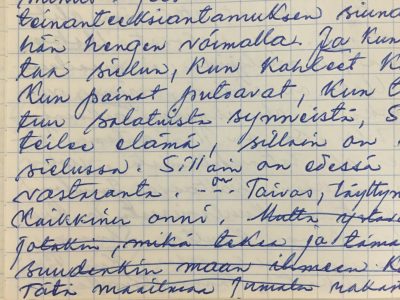 teinanteeksiantamuksen siuna
hän hengen voimalla. Ja kun
taa sielun, kun kahleet k
kun painot putoavat, kun
tuu salatuista synneistä, s
teilee elämä, silloin on
sielussa. Silloin on edessä
vastaranta. on Taivas, täyttyn
kaikkinen onni. Mutta
jotakin, mikä tekee ja tämä
suudenkin maan ihmeen k
Tätä maailmaa Jumala